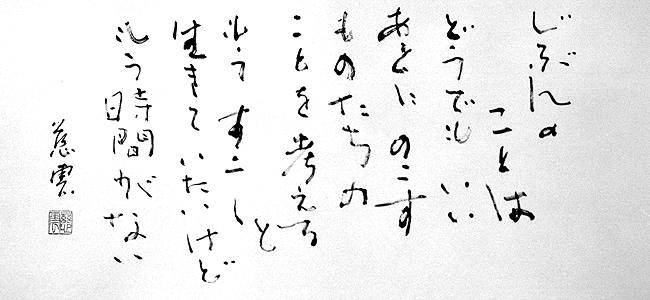 じぶんの
ことは
どうでもいい
あとにのこす
ものたちの
ことを考えると
もうすこし
生きていたいけど
もう時間がない
慈雲